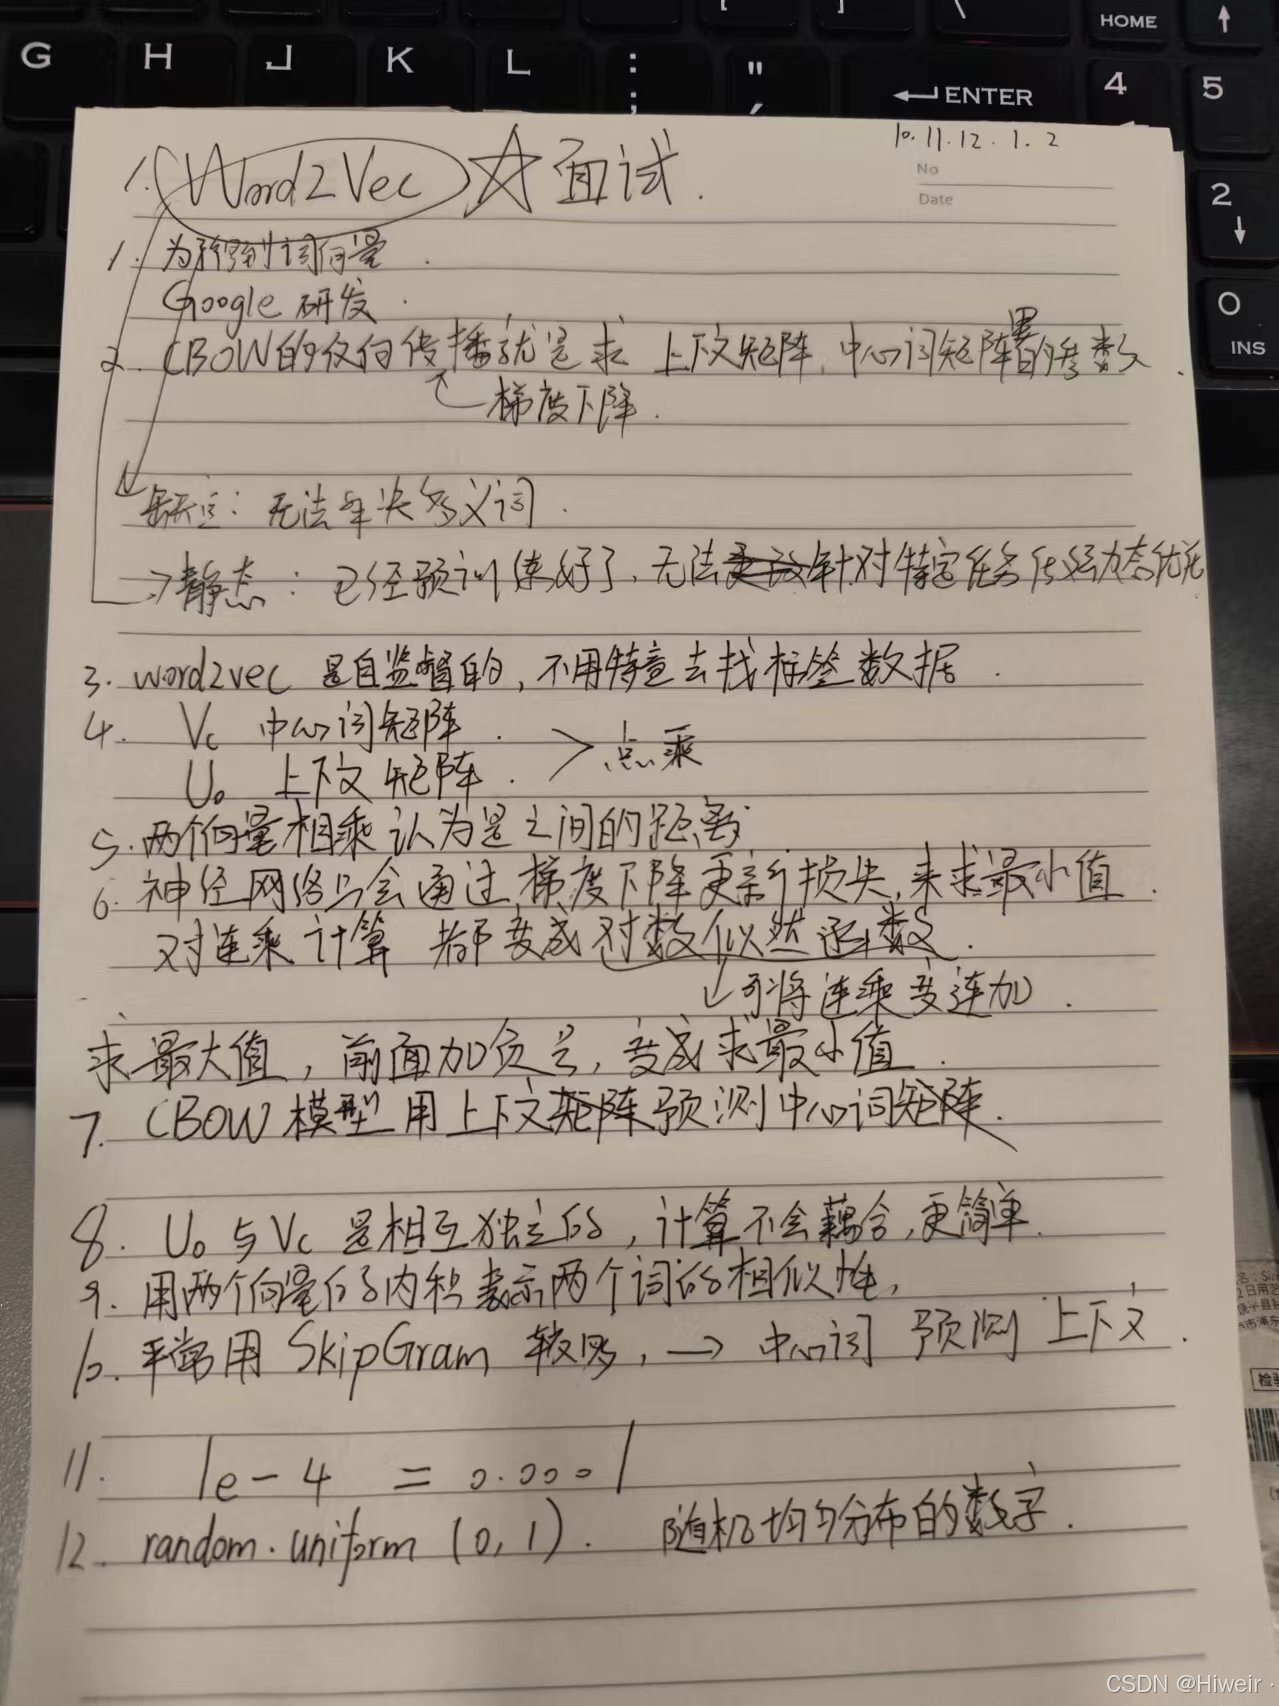 G H J K L : ; " [ ] \ HOME ↑
ENTER 4 5
10.11.12.1.2
No
Date
1. Word2Vec ☆ 面试.
1. 为了得到词向量.
Google 研发.
2. CBOW的反向传播就是求 上下文矩阵, 中心词矩阵里的参数.
梯度下降.
缺点: 无法解决多义词.
→静态: 已经预训练好了, 无法针对特定任务做动态优化
3. word2vec 是自监督的, 不用特意去找标签数据.
4. Vc 中心词矩阵.
> 点乘
Uo 上下文矩阵.
5. 两个向量相乘 认为是之间的距离
6. 神经网络只会通过梯度下降更新损失, 来求最小值.
对连乘计算 都变成对数似然函数.
↓可将连乘变连加.
求最大值, 前面加负号, 变成求最小值.
7. CBOW 模型用上下文矩阵预测中心词矩阵.
8. Uo 与 Vc 是相互独立的, 计算不会藕合, 更简单.
9. 用两个向量的内积表示两个词的相似性,
10. 平常用 SkipGram 较多, → 中心词 预测 上下文.
11. 1e-4 = 0.0001
12. random.uniform (0, 1). 随机均匀分布的数字.
2
↓
0
INS
CSDN @Hiweir